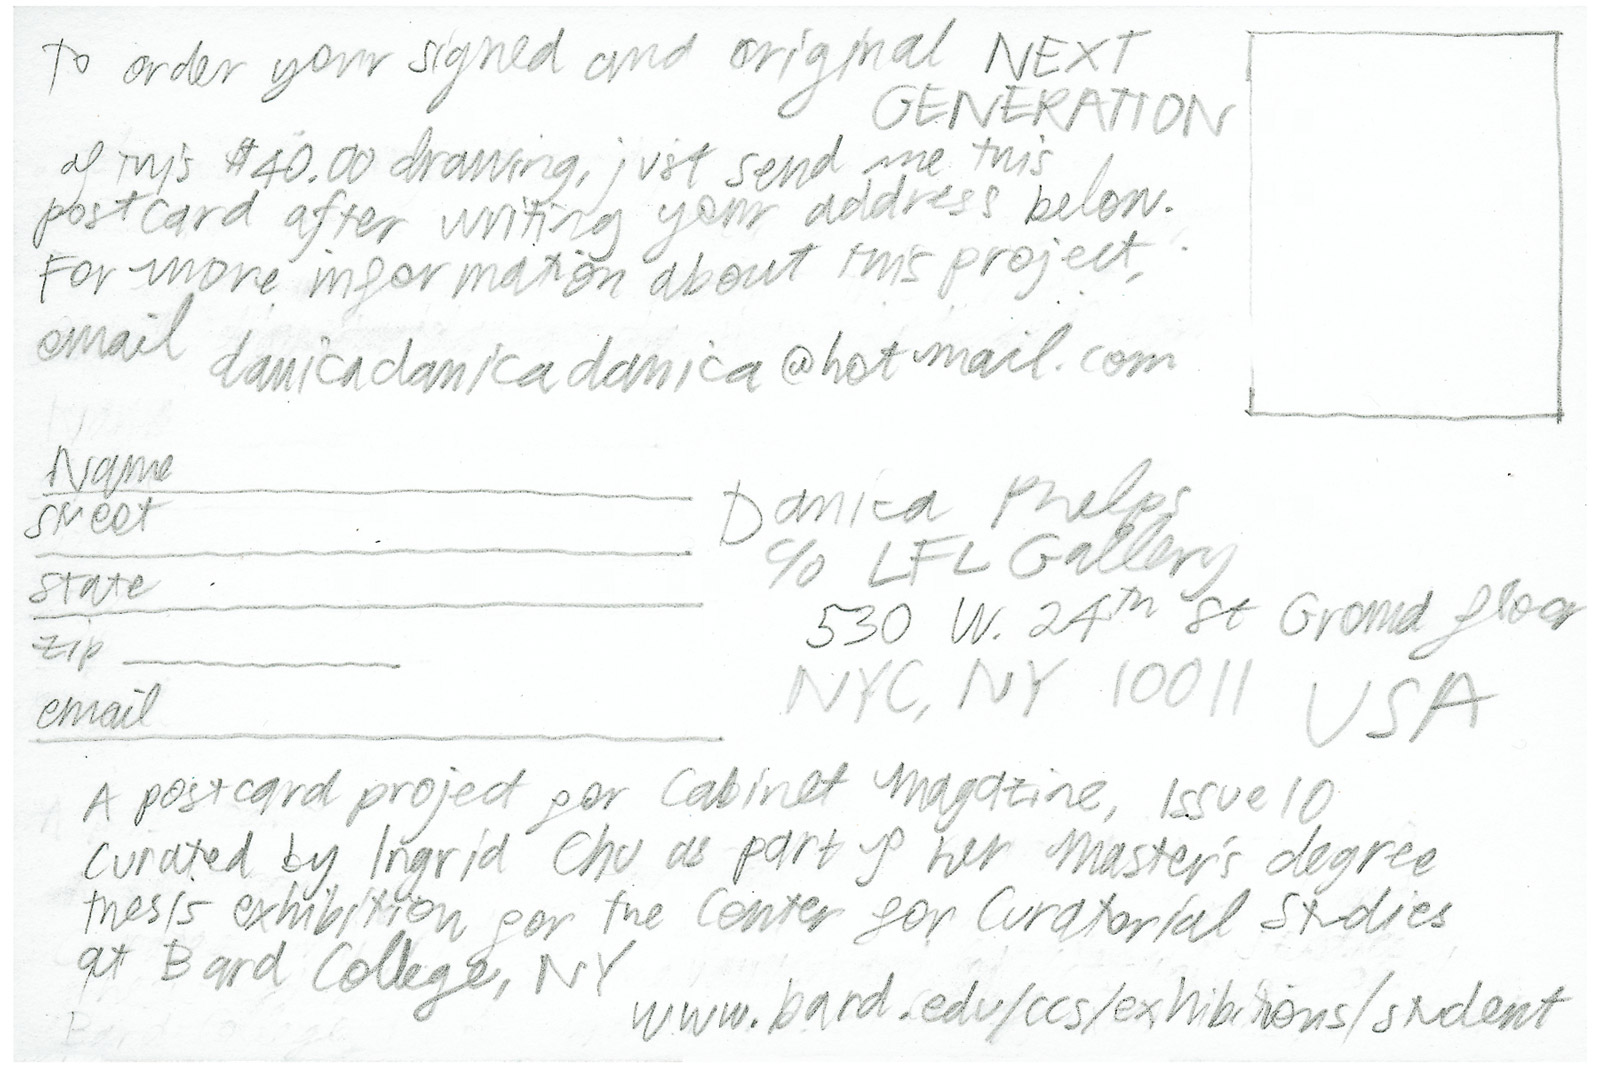 To order your signed and original NEXT
GENERATION
of this $40.00 drawing, just send me this
postcard after writing your address below.
For more information about this project,
email danicadanicadanica@hotmail.com
Name
street
state
zip
email
Danica Phelps
c/o LFL Gallery
530 W. 24th St Ground floor
NYC, NY 10011 USA
A postcard project for Cabinet Magazine, Issue 10
curated by Ingrid Chu as part of her Master's degree
thesis exhibition for the Center for Curatorial Studies
at Bard College, NY
www.bard.edu/ccs/exhibitions/student